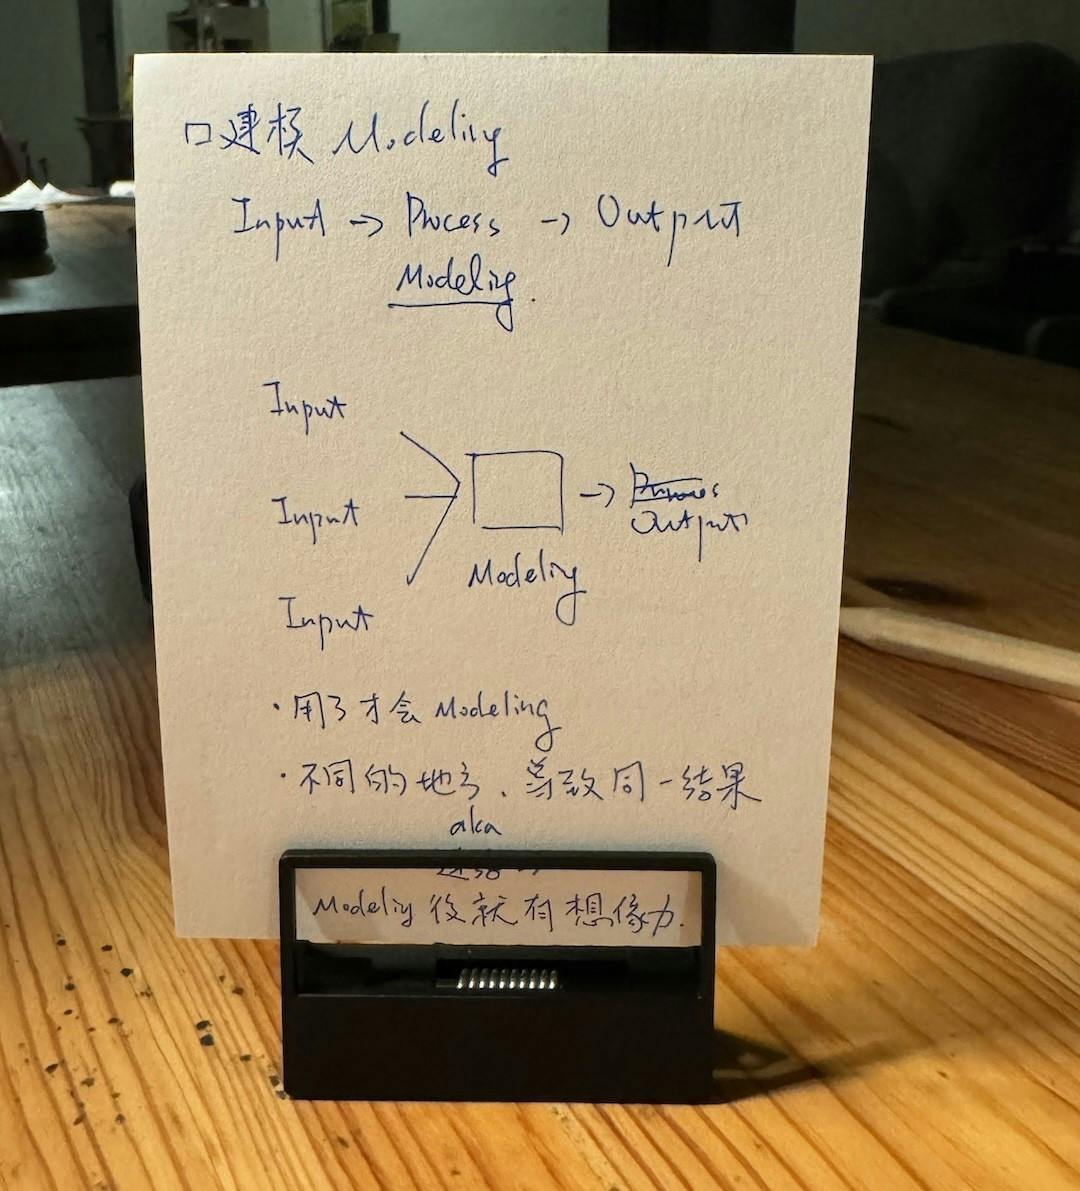 口建模 Modeling
Input → Process → Output
Modeling.
Input
Input
→ Output
Modeling
Input
· 用了才会 Modeling
· 不同的地方、导致同一结果
aka
Modeling 後就有想像力.